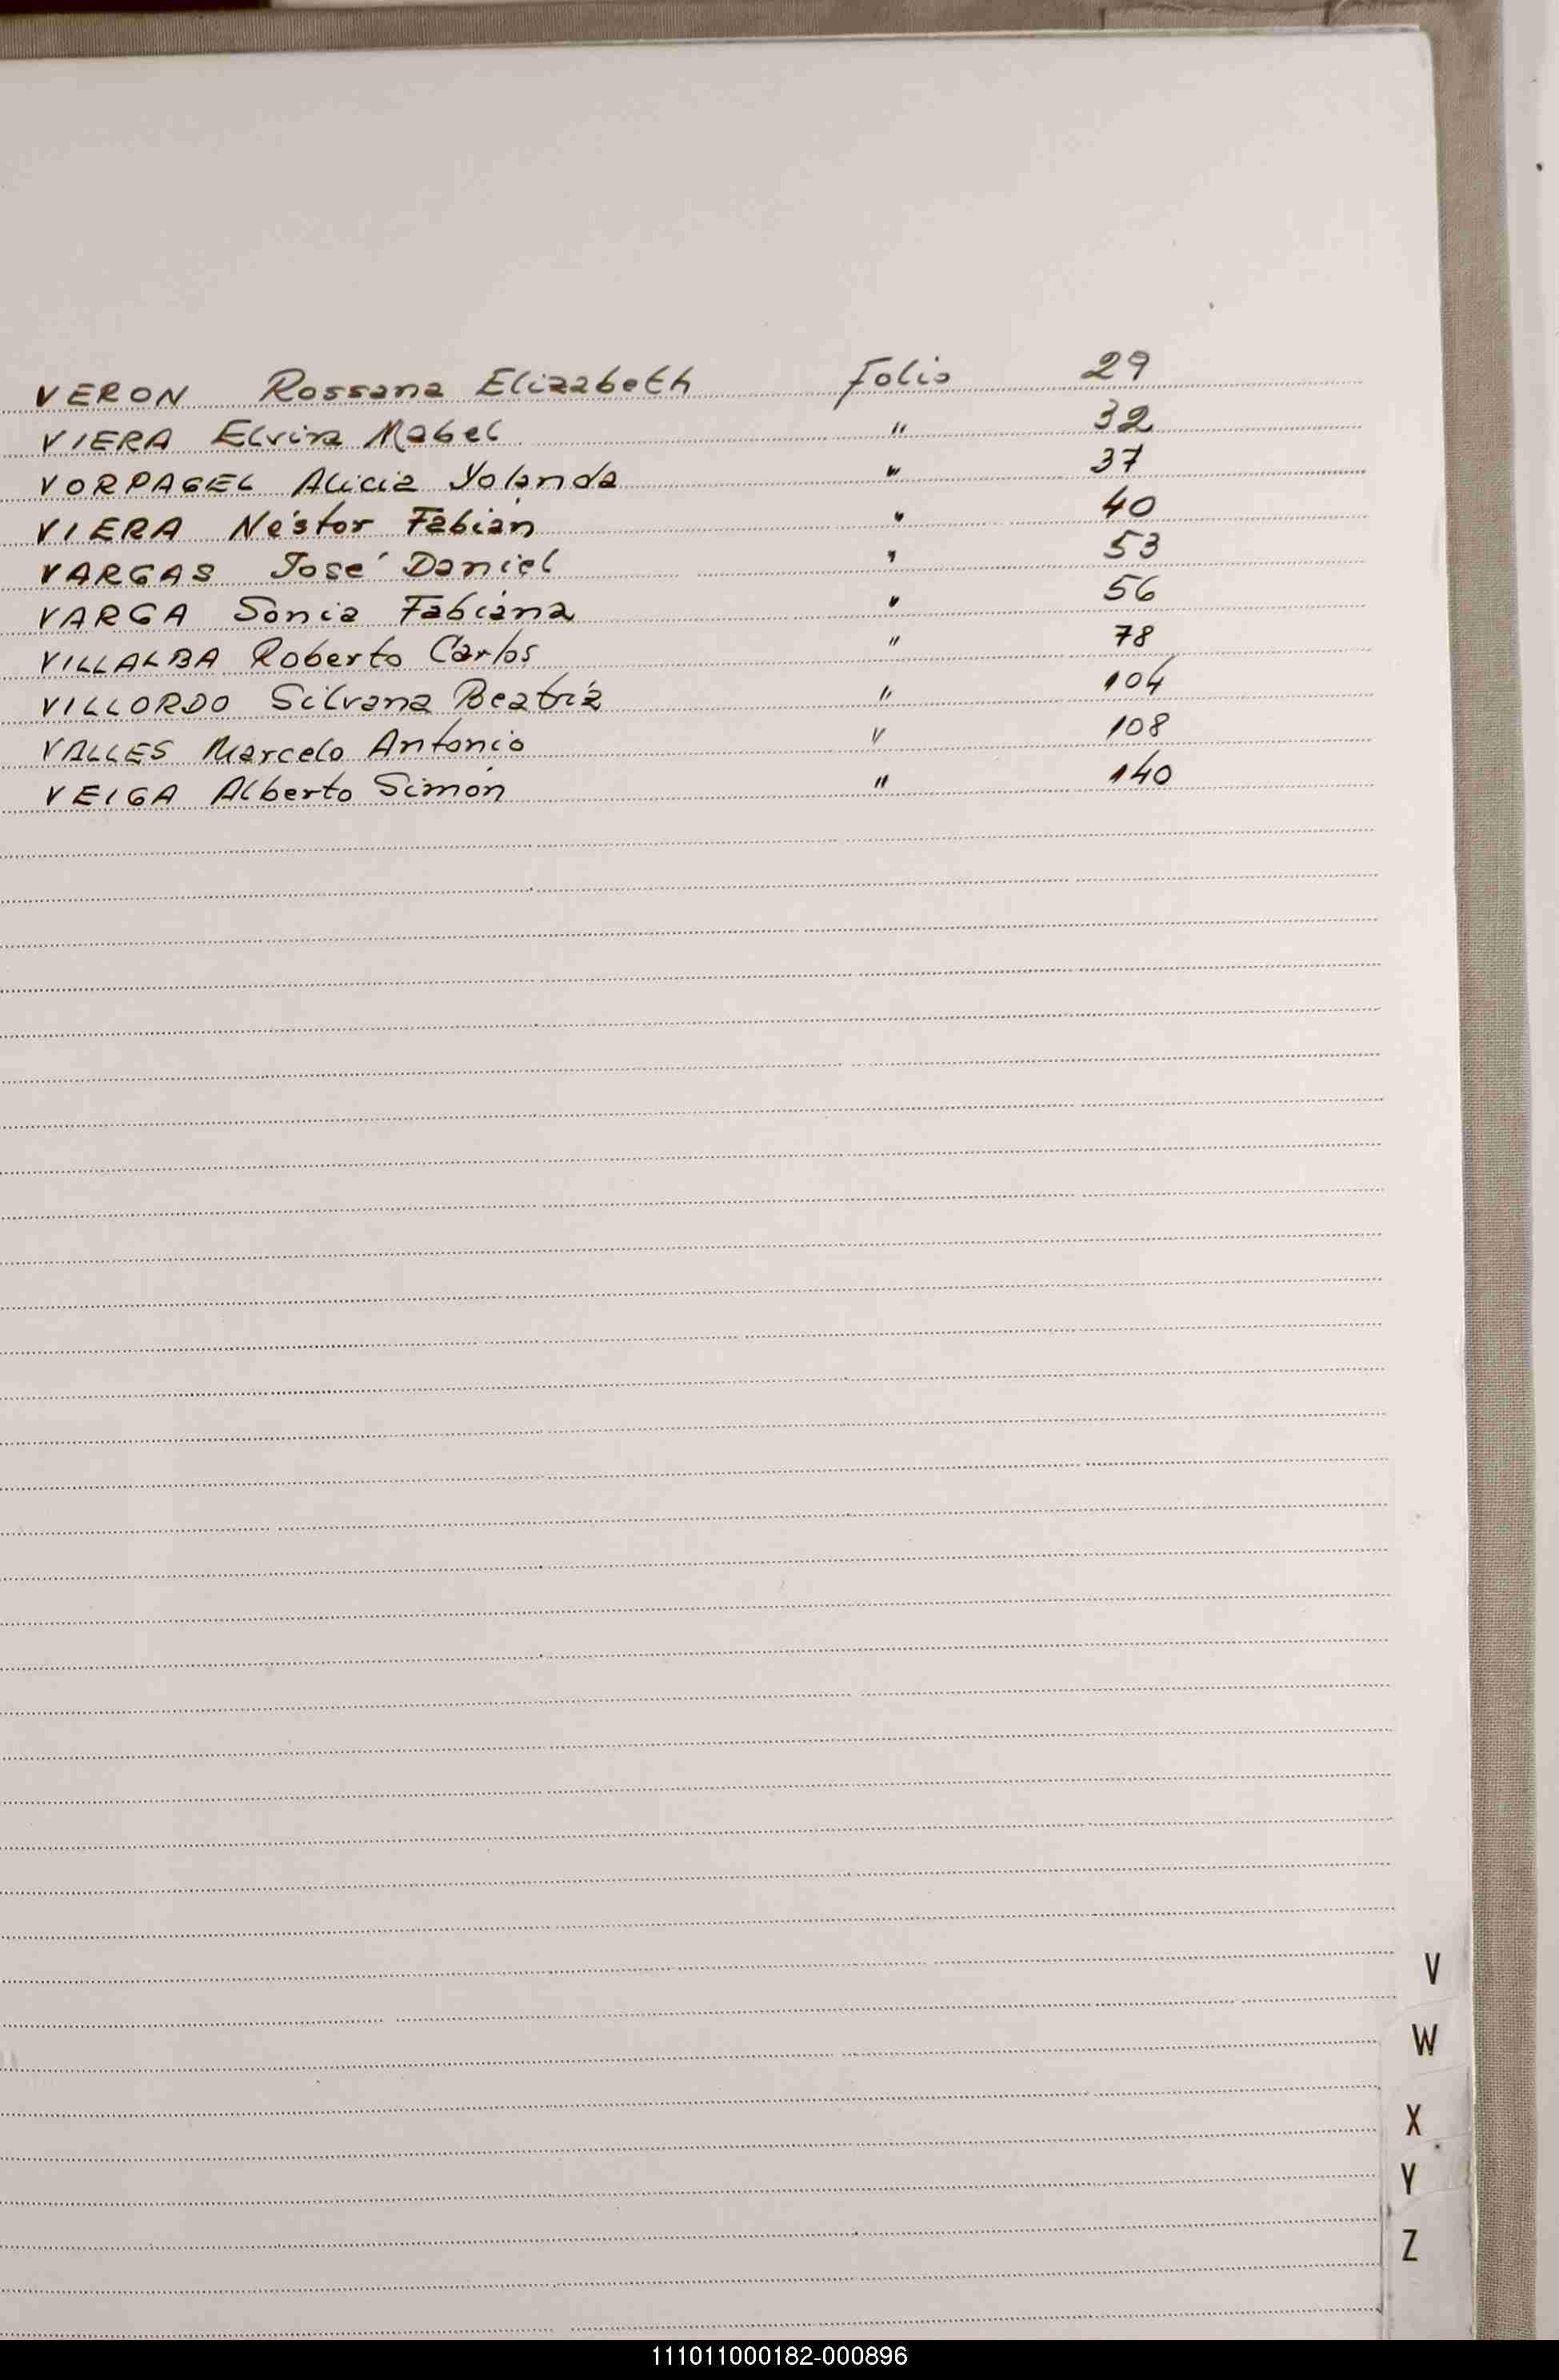 VERON Rossana Elizabeth Folio 29
VIERA Elvira Mabel " 32
VORPAGEL Alicia Yolanda " 37
VIERA Néstor Fabián " 40
VARGAS José Daniel " 53
VARGA Sonia Fabiana " 56
VILLALBA Roberto Carlos " 78
VILLORDO Silvana Beatríz " 104
VALLES Marcelo Antonio " 108
VEIGA Alberto Simón " 140
V
W
X
Y
Z
111011000182-000896